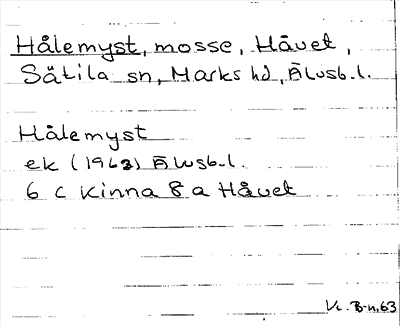 Hålemyst, mosse, Håvet,
Sätila sn, Marks hd, Älvsb. l.
Hålemyst
ek (1963) Älvsb. l.
6 C Kinna 8 a Håvet
B-n, 63